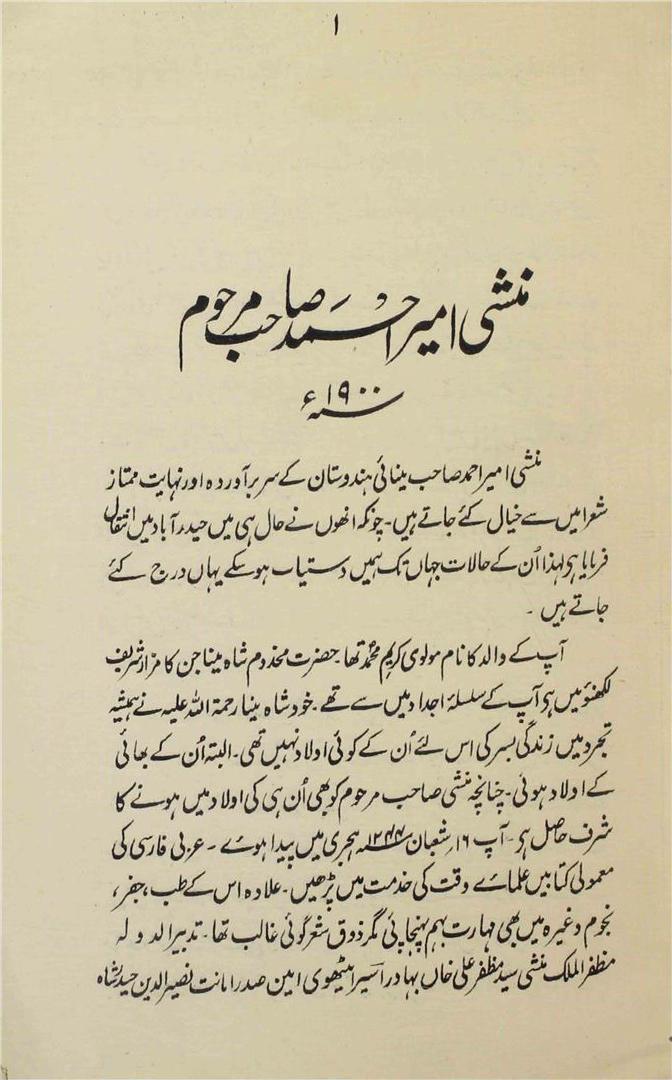 ۱
منشی امیر احمد صاحب مرحوم
سنہ ۱۹۰۰ء
منشی امیر احمد صاحب مینائی ہندوستان کے سربرآوردہ اور نہایت ممتاز
شعرا میں سے خیال کئے جاتے ہیں۔ چونکہ انھوں نے حال ہی میں حیدرآباد میں انتقال
فرمایا ہی لہذا اُن کے حالات جہاں تک ہمیں دستیاب ہو سکے یہاں درج کئے
جاتے ہیں ۔
آپ کے والد کا نام مولوی کریم محمد تھا۔ حضرت مخدوم شاہ مینا جن کا مزار شریف
لکھنؤ میں ہی آپ کے سلسلۂ اجداد میں سے تھے ۔ خود شاہ مینا رحمۃ اللہ علیہ نے ہمیشہ
تجرد میں زندگی بسر کی اس لئے اُن کے کوئی اولاد نہیں تھی۔ البتہ اُن کے بھائی
کے اولاد ہوئی۔ چنانچہ منشی صاحب مرحوم کو بھی اُن ہی کی اولاد میں ہونے کا
شرف حاصل ہی۔ آپ ۱۶؍ شعبان سنہ ۱۲۴۴ ہجری میں پیدا ہوے ۔ عربی فارسی کی
معمولی کتابیں علماے وقت کی خدمت میں پڑھیں۔ علاوہ اس کے طب، جفر،
نجوم وغیرہ میں بھی مہارت بہم پہنچائی مگر ذوق شعر گوئی غالب تھا۔ تدبیر الدولہ
مظفر الملک منشی سید مظفر علی خاں بہادر اسیر امیٹھوی امین صدر امانت نصیر الدین حیدر شاہ